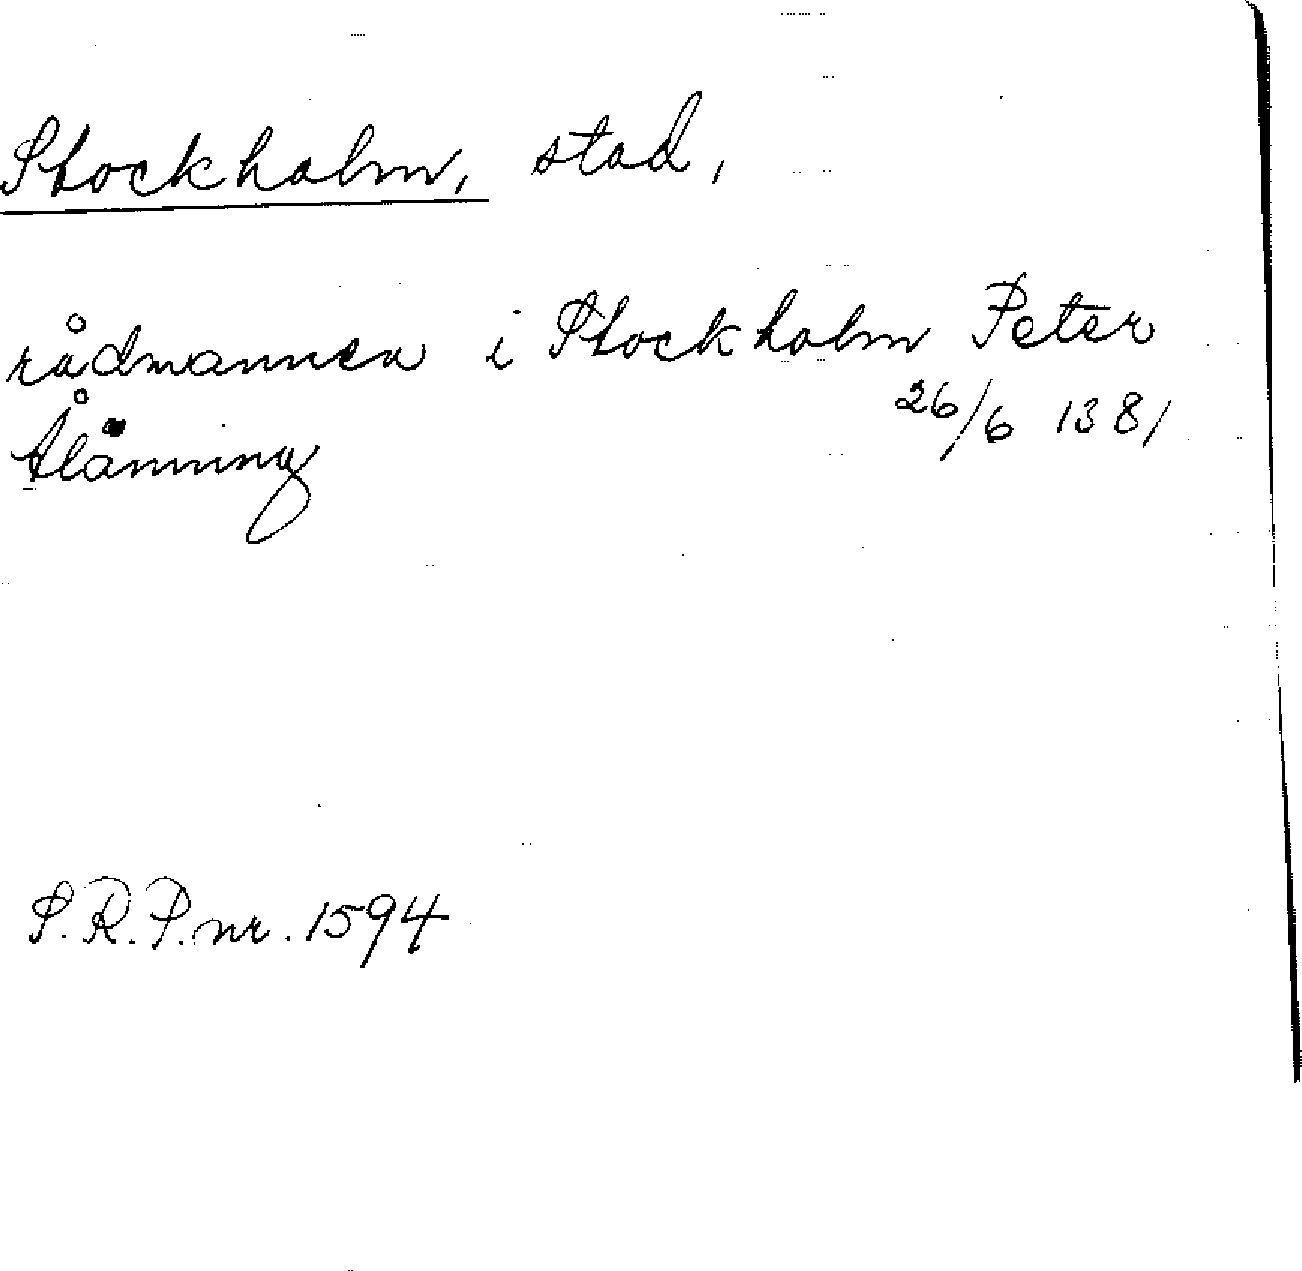 Stockholm, stad,
rådmannen i Stockholm Peter
Ålänning 26/6 1381
S.R.P. nr. 1594